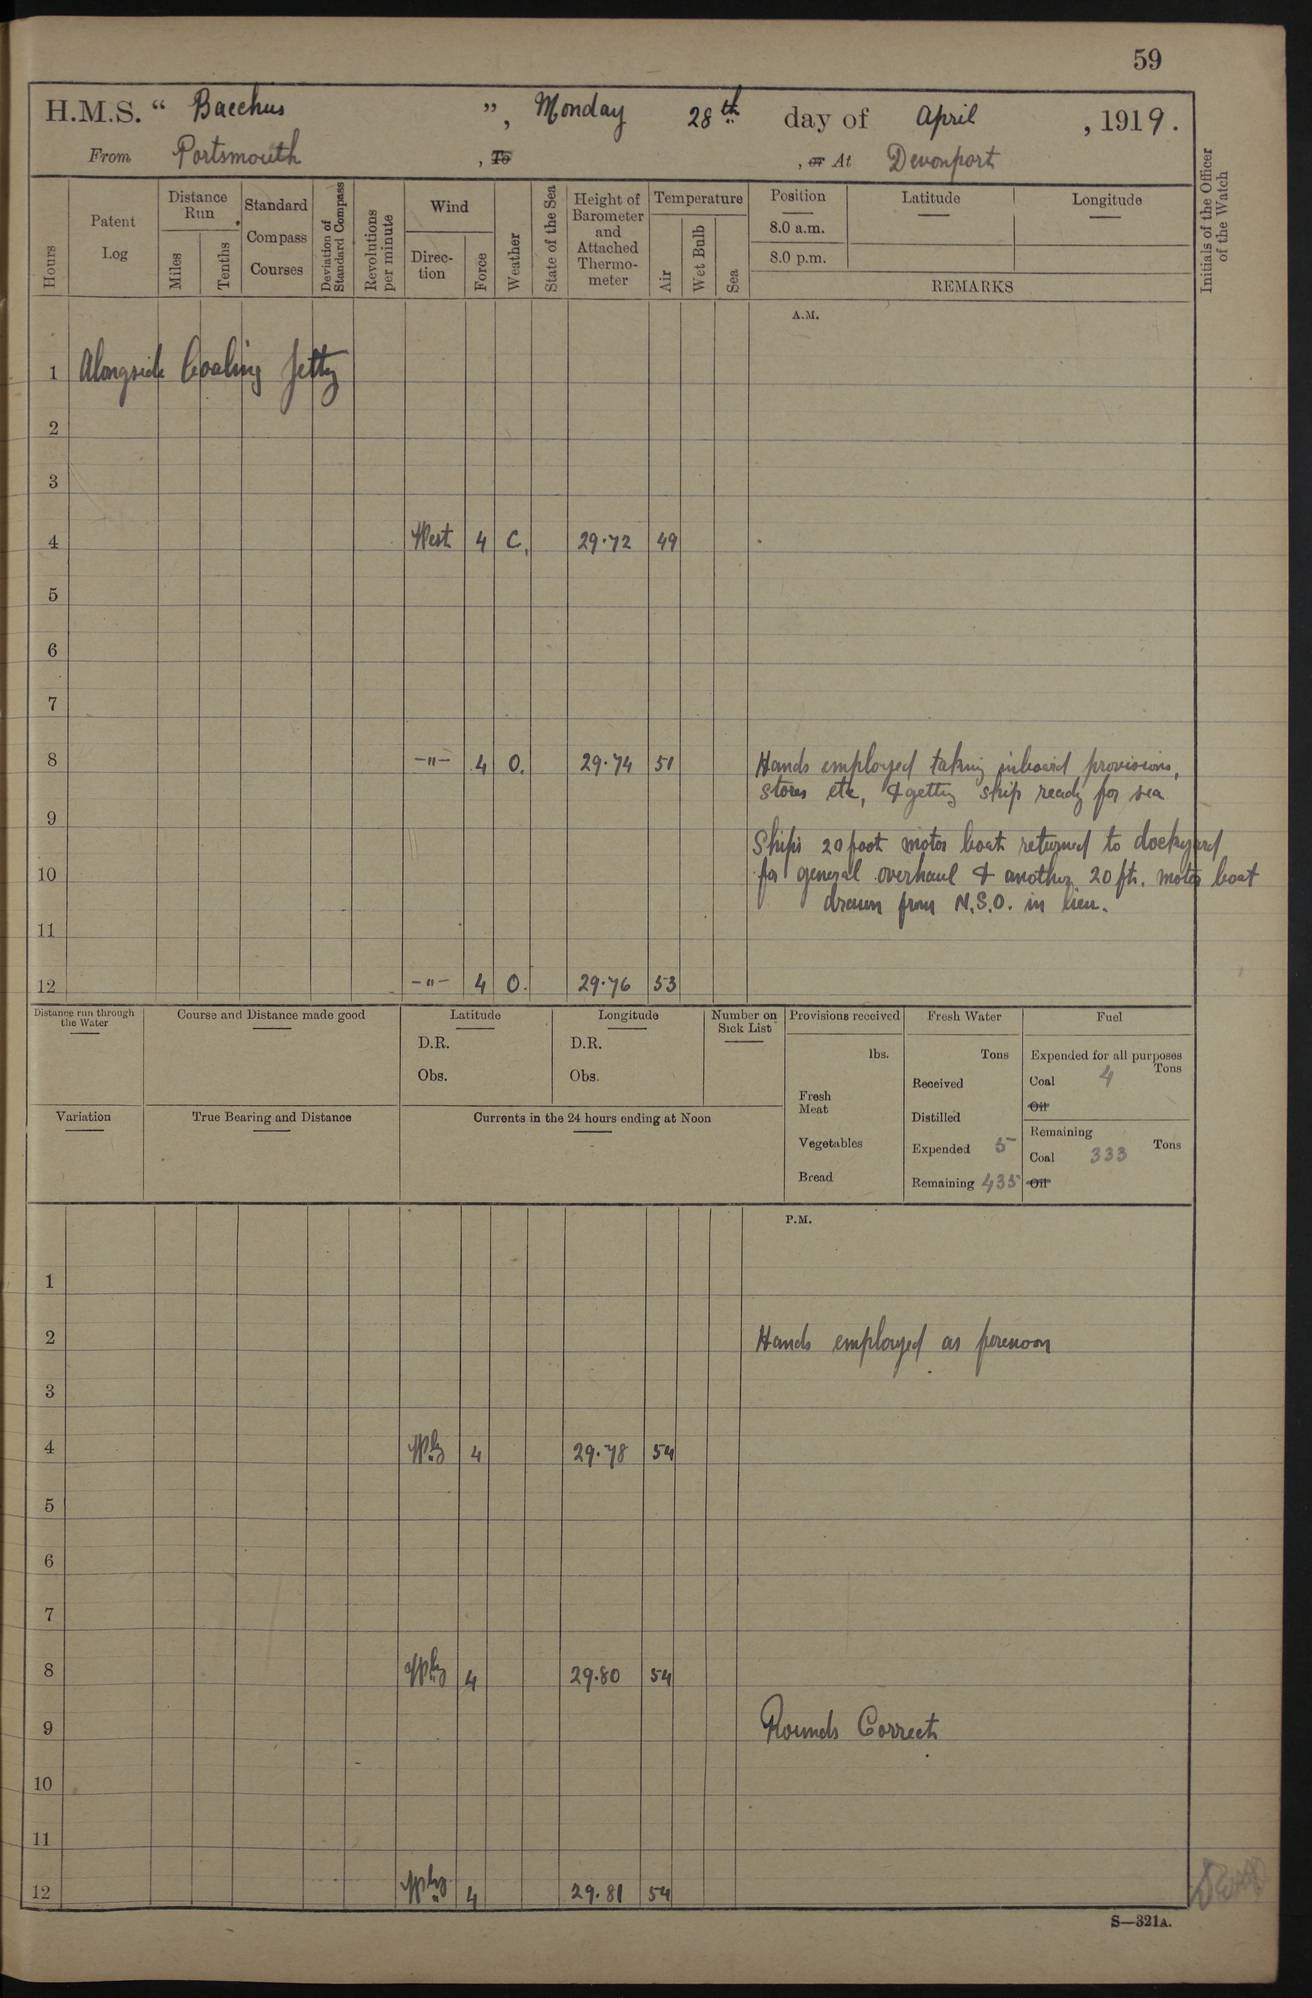 59
H.M.S. “ Bacchus ”, Monday 28th day of April, 1919.
From Portsmouth, To , or At Devonport
Hours
Patent Log
Distance Run
Miles
Tenths
Standard Compass Courses
Deviation of Standard Compass
Revolutions per minute
Wind
Direction
Force
Weather
State of the Sea
Height of Barometer and Attached Thermometer
Temperature
Air
Wet Bulb
Sea
Position
8.0 a.m.
8.0 p.m.
Latitude
Longitude
REMARKS
Initials of the Officer of the Watch
A.M.
1 Alongside Coaling Jetty
2
3
4 West 4 C. 29.72 49
5
6
7
8 -"- 4 O. 29.74 51 Hands employed taking inboard provisions,
stores etc, & getting ship ready for sea
9
Ship's 20 foot motor boat returned to dockyard
10 for general overhaul & another 20 ft. motor boat
drawn from N.S.O. in lieu.
11
12 -"- 4 O. 29.76 53
Distance run through the Water
Course and Distance made good
Latitude
D.R.
Obs.
Longitude
D.R.
Obs.
Number on Sick List
Provisions received
lbs.
Fresh Meat
Vegetables
Bread
Fresh Water
Tons
Received
Distilled
Expended 5
Remaining 435
Fuel
Expended for all purposes
Tons
Coal 4
Oil
Remaining
Tons
Coal 333
Oil
Variation
True Bearing and Distance
Currents in the 24 hours ending at Noon
P.M.
1
2 Hands employed as forenoon
3
4 Wly 4 29.78 54
5
6
7
8 Wly 4 29.80 54
9 Rounds Correct
10
11
12 Wly 4 29.81 54
S—321A.